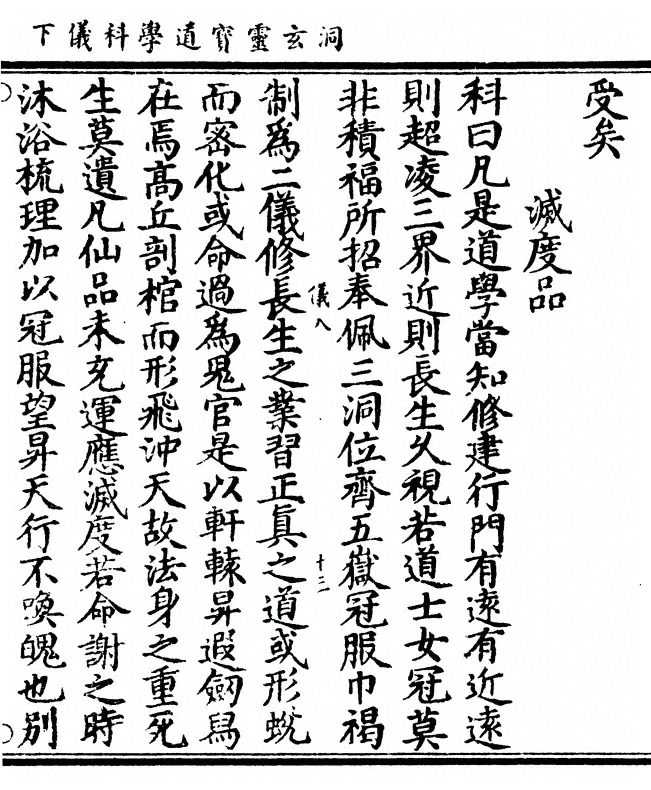 洞玄靈寶道學科儀下
受矣
滅度品
科曰凡是道學當知修建行門有遠有近遠
則超凌三界近則長生久視若道士女冠莫
非積福所招奉佩三洞位齊五嶽冠服巾褐
儀八
十三
制爲二儀修長生之業習正眞之道或形蛻
而密化或命過爲鬼官是以軒轅昇遐劒舄
在焉高丘剖棺而形飛沖天故法身之重死
生莫遺凡仙品未充運應滅度若命謝之時
沐浴梳理加以冠服望昇天行不喚魄也別